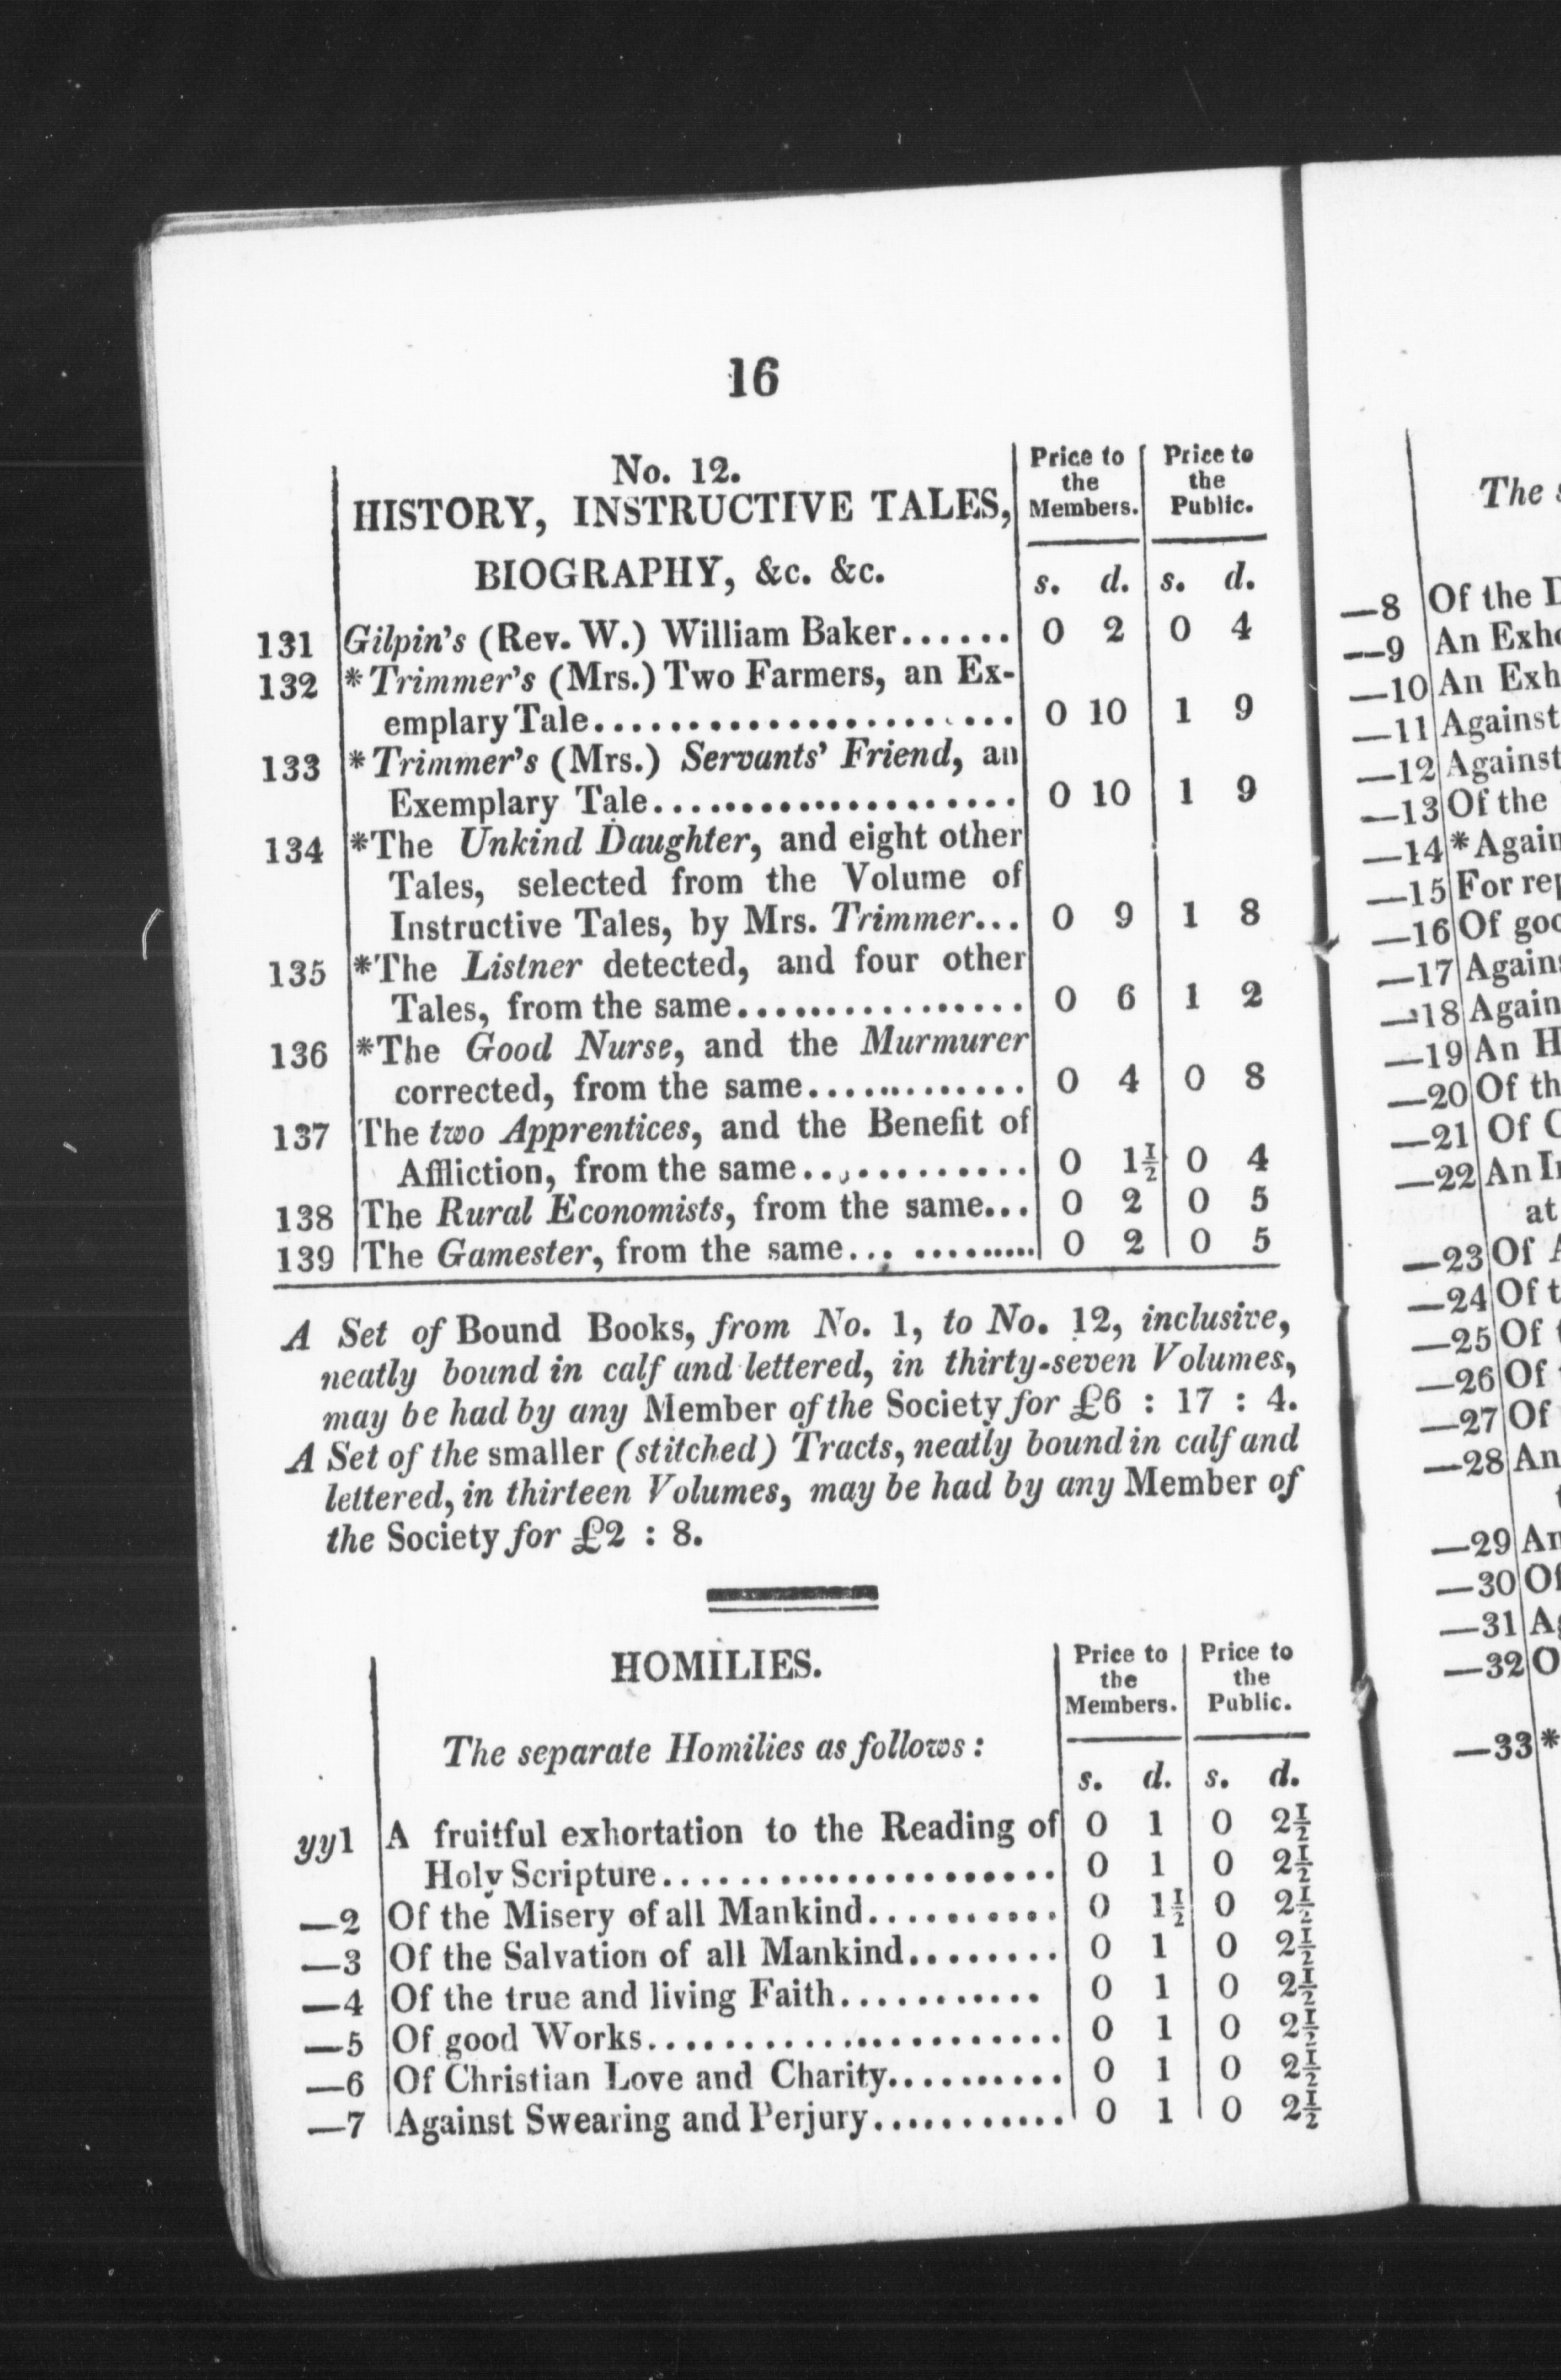 16
No. 12.
HISTORY, INSTRUCTIVE TALES,
BIOGRAPHY, &c. &c.
Price to the Members.
Price to the Public.
s. d. s. d.
131 Gilpin's (Rev. W.) William Baker...... 0 2 0 4
132 *Trimmer's (Mrs.) Two Farmers, an Ex-
emplary Tale....................... 0 10 1 9
133 *Trimmer's (Mrs.) Servants' Friend, an
Exemplary Tale.................... 0 10 1 9
134 *The Unkind Daughter, and eight other
Tales, selected from the Volume of
Instructive Tales, by Mrs. Trimmer... 0 9 1 8
135 *The Listner detected, and four other
Tales, from the same................ 0 6 1 2
136 *The Good Nurse, and the Murmurer
corrected, from the same............. 0 4 0 8
137 The two Apprentices, and the Benefit of
Affliction, from the same............. 0 1½ 0 4
138 The Rural Economists, from the same... 0 2 0 5
139 The Gamester, from the same... ......... 0 2 0 5
A Set of Bound Books, from No. 1, to No. 12, inclusive,
neatly bound in calf and lettered, in thirty-seven Volumes,
may be had by any Member of the Society for £6 : 17 : 4.
A Set of the smaller (stitched) Tracts, neatly bound in calf and
lettered, in thirteen Volumes, may be had by any Member of
the Society for £2 : 8.
HOMILIES.
Price to the Members.
Price to the Public.
The separate Homilies as follows:
s. d. s. d.
yy1 A fruitful exhortation to the Reading of 0 1 0 2½
Holy Scripture...................... 0 1 0 2½
—2 Of the Misery of all Mankind........... 0 1½ 0 2½
—3 Of the Salvation of all Mankind........ 0 1 0 2½
—4 Of the true and living Faith........... 0 1 0 2½
—5 Of good Works....................... 0 1 0 2½
—6 Of Christian Love and Charity.......... 0 1 0 2½
—7 Against Swearing and Perjury........... 0 1 0 2½
The
—8 Of the
—9 An
—10 An
—11 Against
—12 Against
—13 Of the
—14 *
—15 For
—16 Of
—17
—18
—19 An
—20 Of
—21 Of
—22 An
at
—23 Of
—24 Of
—25 Of
—26 Of
—27 Of
—28 An
—29
—30
—31
—32
—33 *